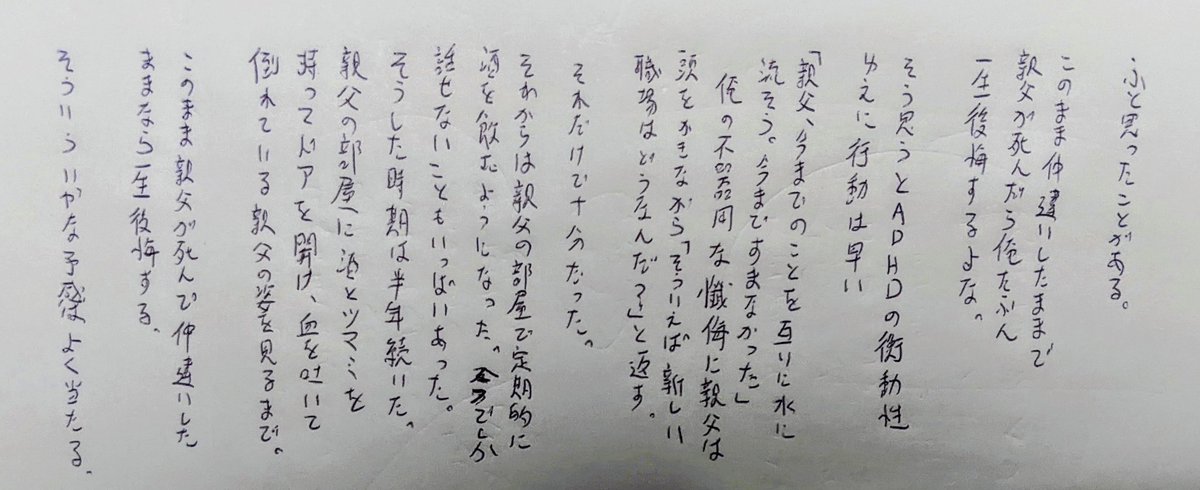 ふと思ったことがある。
このまま仲違いしたままで
親父が死んだら俺たぶん
一生後悔するよな。
そう思うとADHDの衝動性
ゆえに行動は早い
「親父、今までのことを互いに水に
流そう。今まですまなかった」
俺の不器用な懺悔に親父は
頭をかきながら「そういえば新しい
職場はどうなんだ?」と返す。
それだけで十分だった。
それからは親父の部屋で定期的に
酒を飲むようになった。でしか
話せないこともいっぱいあった。
そうした時期は半年続いた。
親父の部屋に酒とツマミを
持ってドアを開け、血を吐いて
倒れている親父の姿を見るまで。
このまま親父が死んで仲違いした
ままなら一生後悔する。
そういういやな予感はよく当たる。